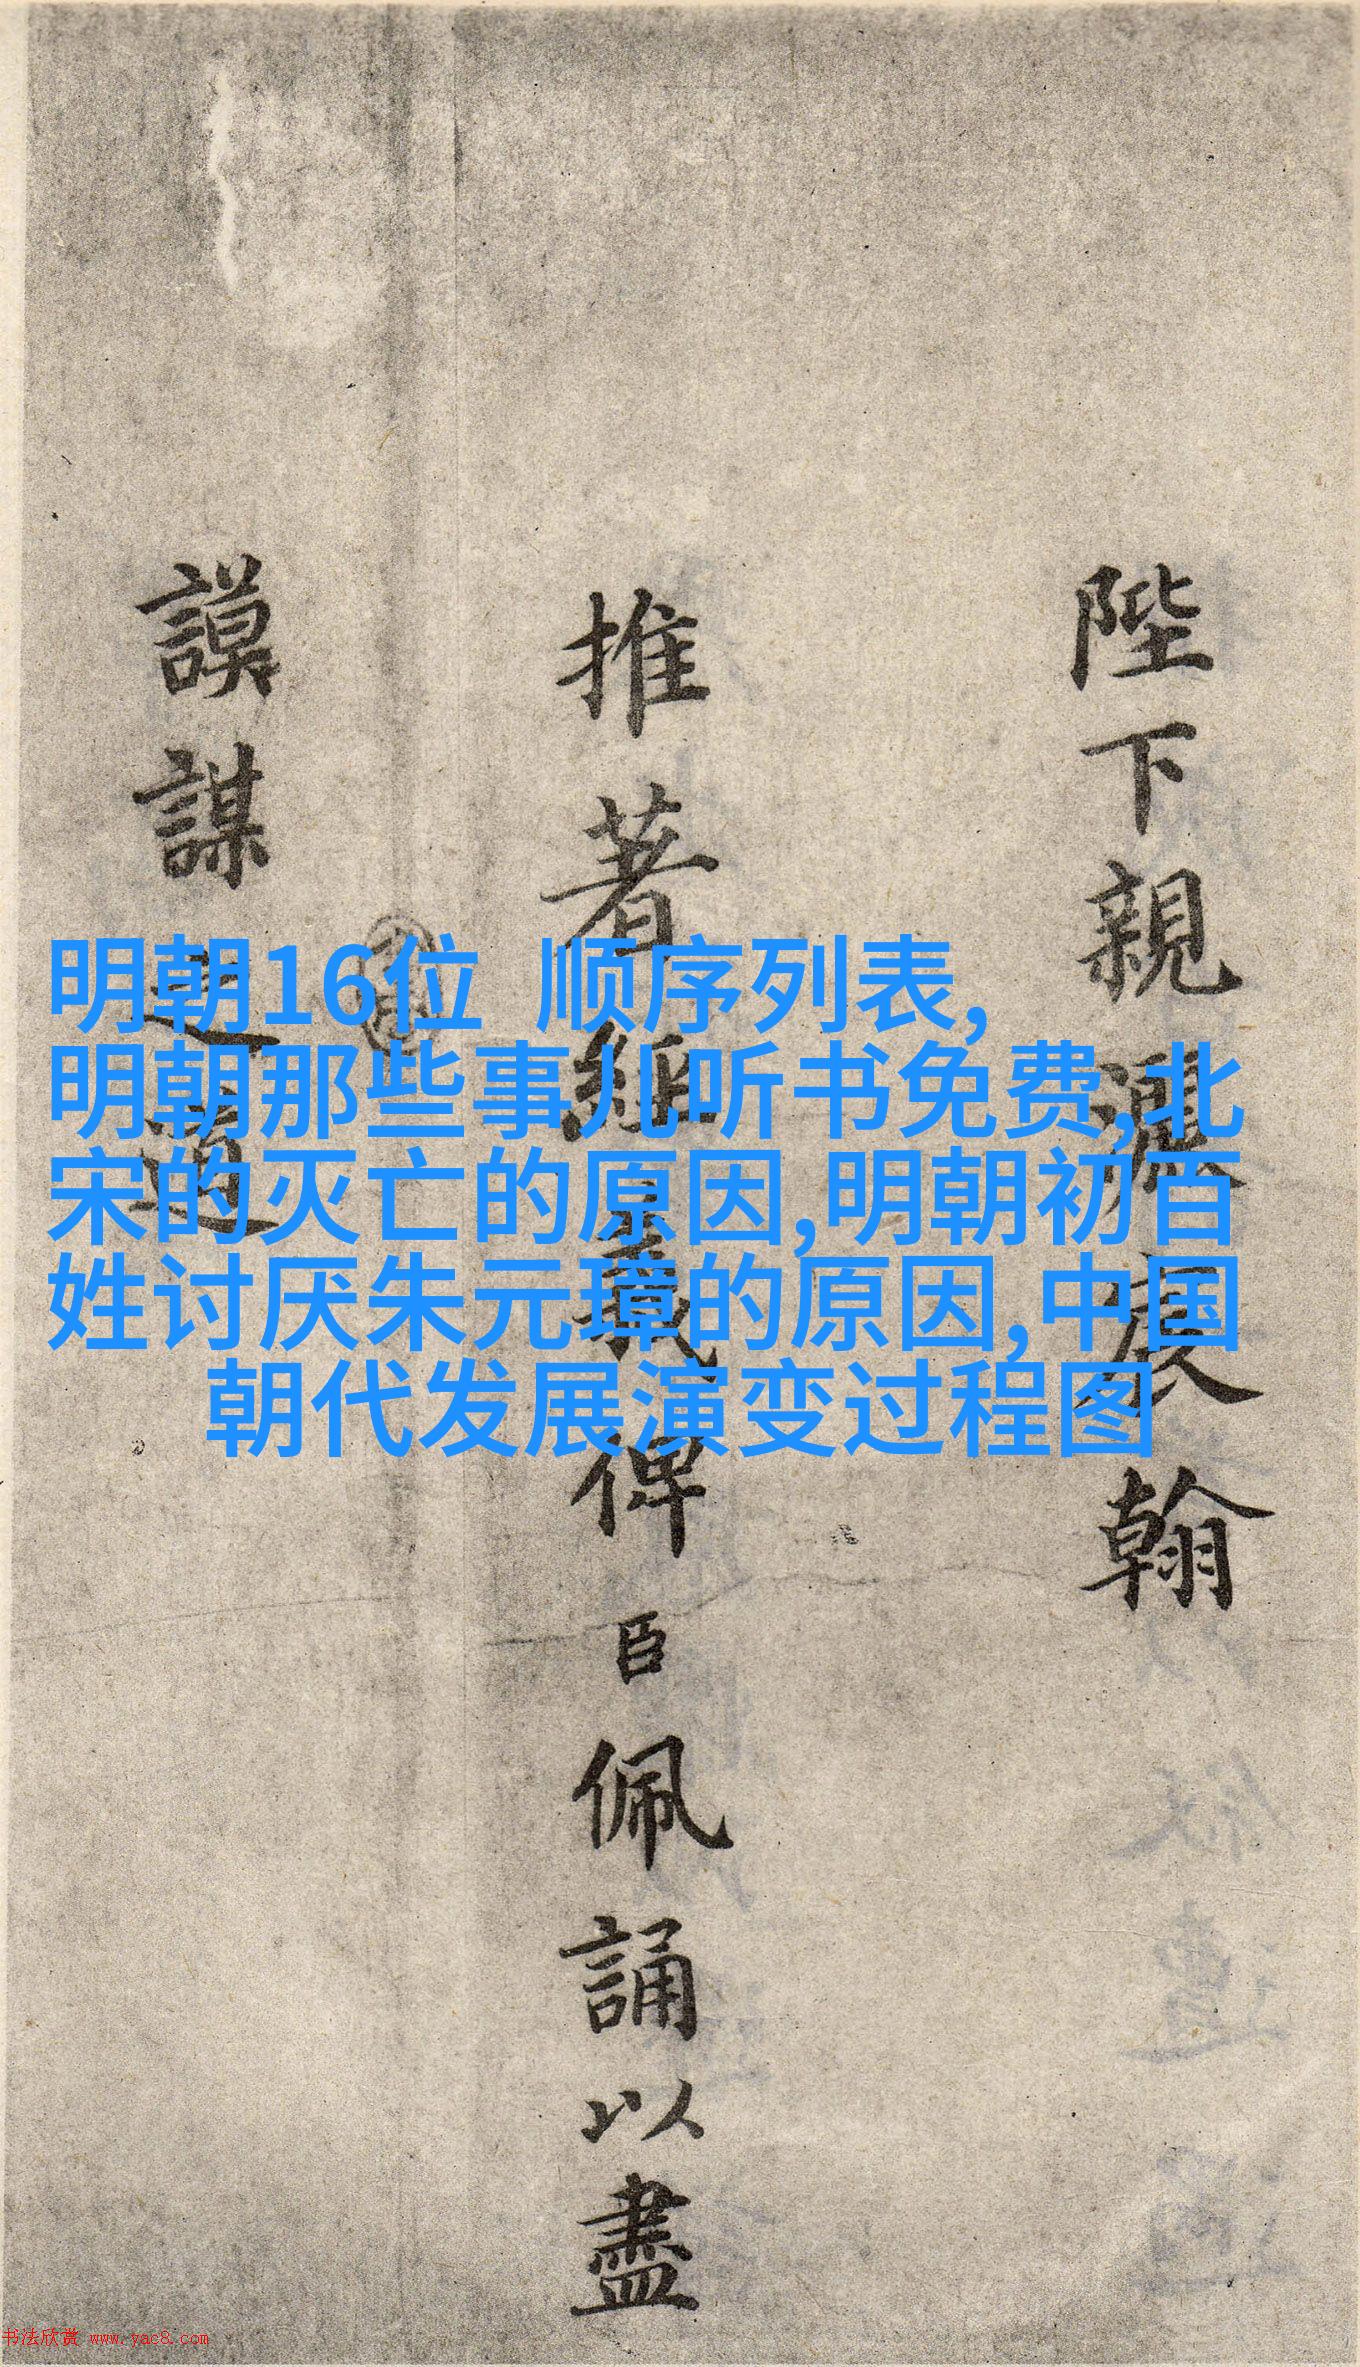 陛下親灑宸翰
推著經義俾臣佩誦以盡
謨謀之道
明朝16位 顺序列表,
明朝那些事儿听书免费,北
宋的灭亡的原因,明朝初百
姓讨厌朱元璋的原因,中国
朝代发展演变过程图
书法欣赏 www.yac8.com